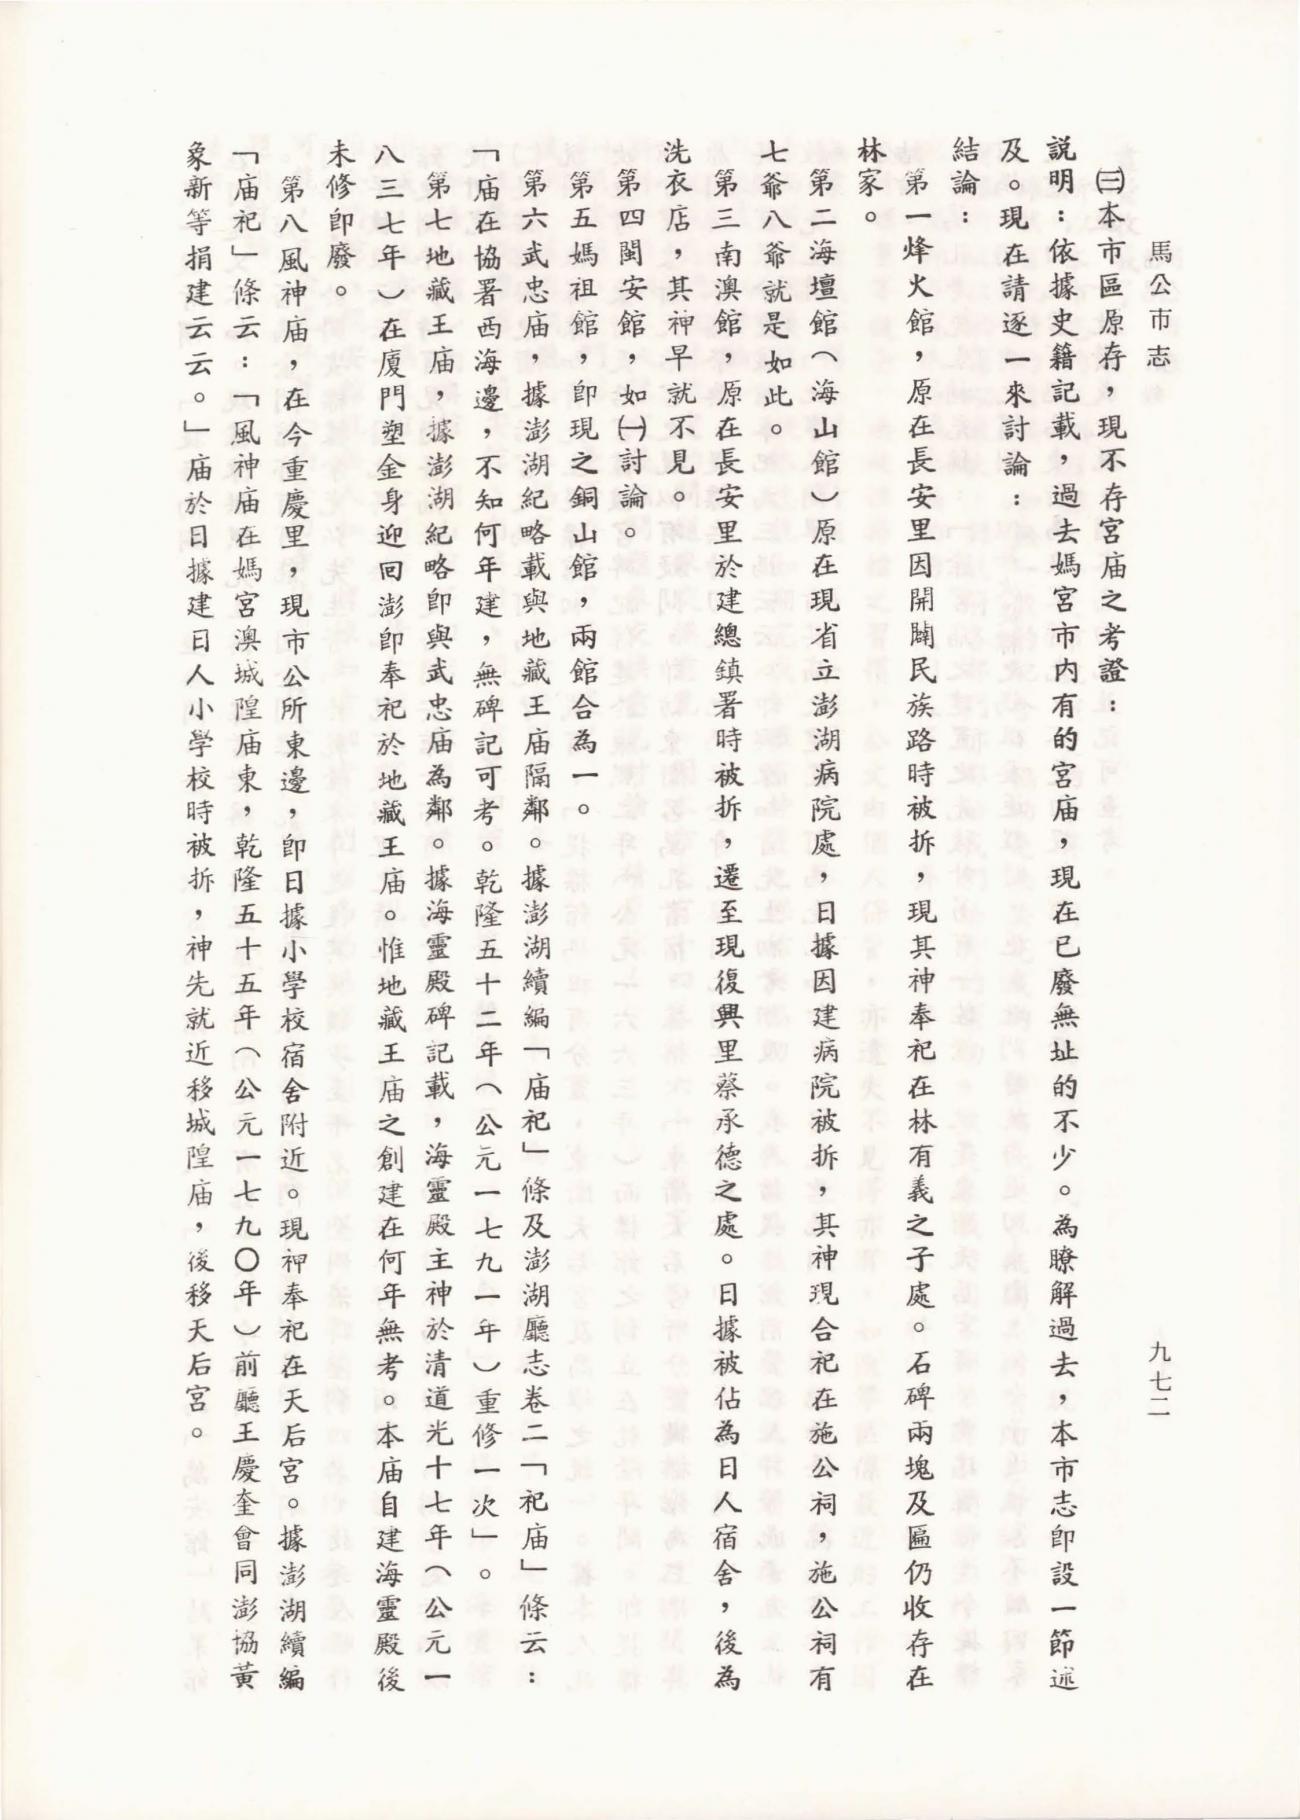 馬公市志
九七二
㈢本市區原存，現不存宮庙之考證：
說明：依據史籍記載，過去媽宮市內有的宮庙，現在已廢無址的不少。為瞭解過去，本市志卽設一節述
及。現在請逐一來討論：
結論：
第一烽火館，原在長安里因開闢民族路時被拆，現其神奉祀在林有義之子處。石碑兩塊及區仍收存在
林家。
第二海壇館（海山館）原在現省立澎湖病院處，日據因建病院被拆，其神現合祀在施公祠，施公祠有
七爺八爺就是如此。
第三南澳館，原在長安里於建總鎮署時被拆，遷至現復興里蔡承德之處。日據被佔為日人宿舍，後為
洗衣店，其神早就不見。
第四閩安館，如㈠討論。
第五媽祖館，卽現之銅山館，兩館合為一。
第六武忠庙，據澎湖紀略載與地藏王庙隔鄰。據澎湖續編「庙祀」條及澎湖廳志卷二「祀庙」條云：
「庙在協署西海邊，不知何年建，無碑記可考。乾隆五十二年（公元一七九一年）重修一次」。
第七地藏王庙，據澎湖紀略卽與武忠庙為鄰。據海靈殿碑記載，海靈殿主神於清道光十七年（公元一
八三七年）在廈門塑金身迎回澎卽奉祀於地藏王庙。惟地藏王庙之創建在何年無考。本庙自建海靈殿後
未修卽廢。
第八風神庙，在今重慶里，現市公所東邊，卽日據小學校宿舍附近。現神奉祀在天后宮。據澎湖續編
「庙祀」條云：「風神庙在媽宮澳城隍庙東，乾隆五十五年（公元一七九〇年）前廳王慶奎會同澎協黃
象新等捐建云云。」庙於日據建日人小學校時被拆，神先就近移城隍庙，後移天后宮。